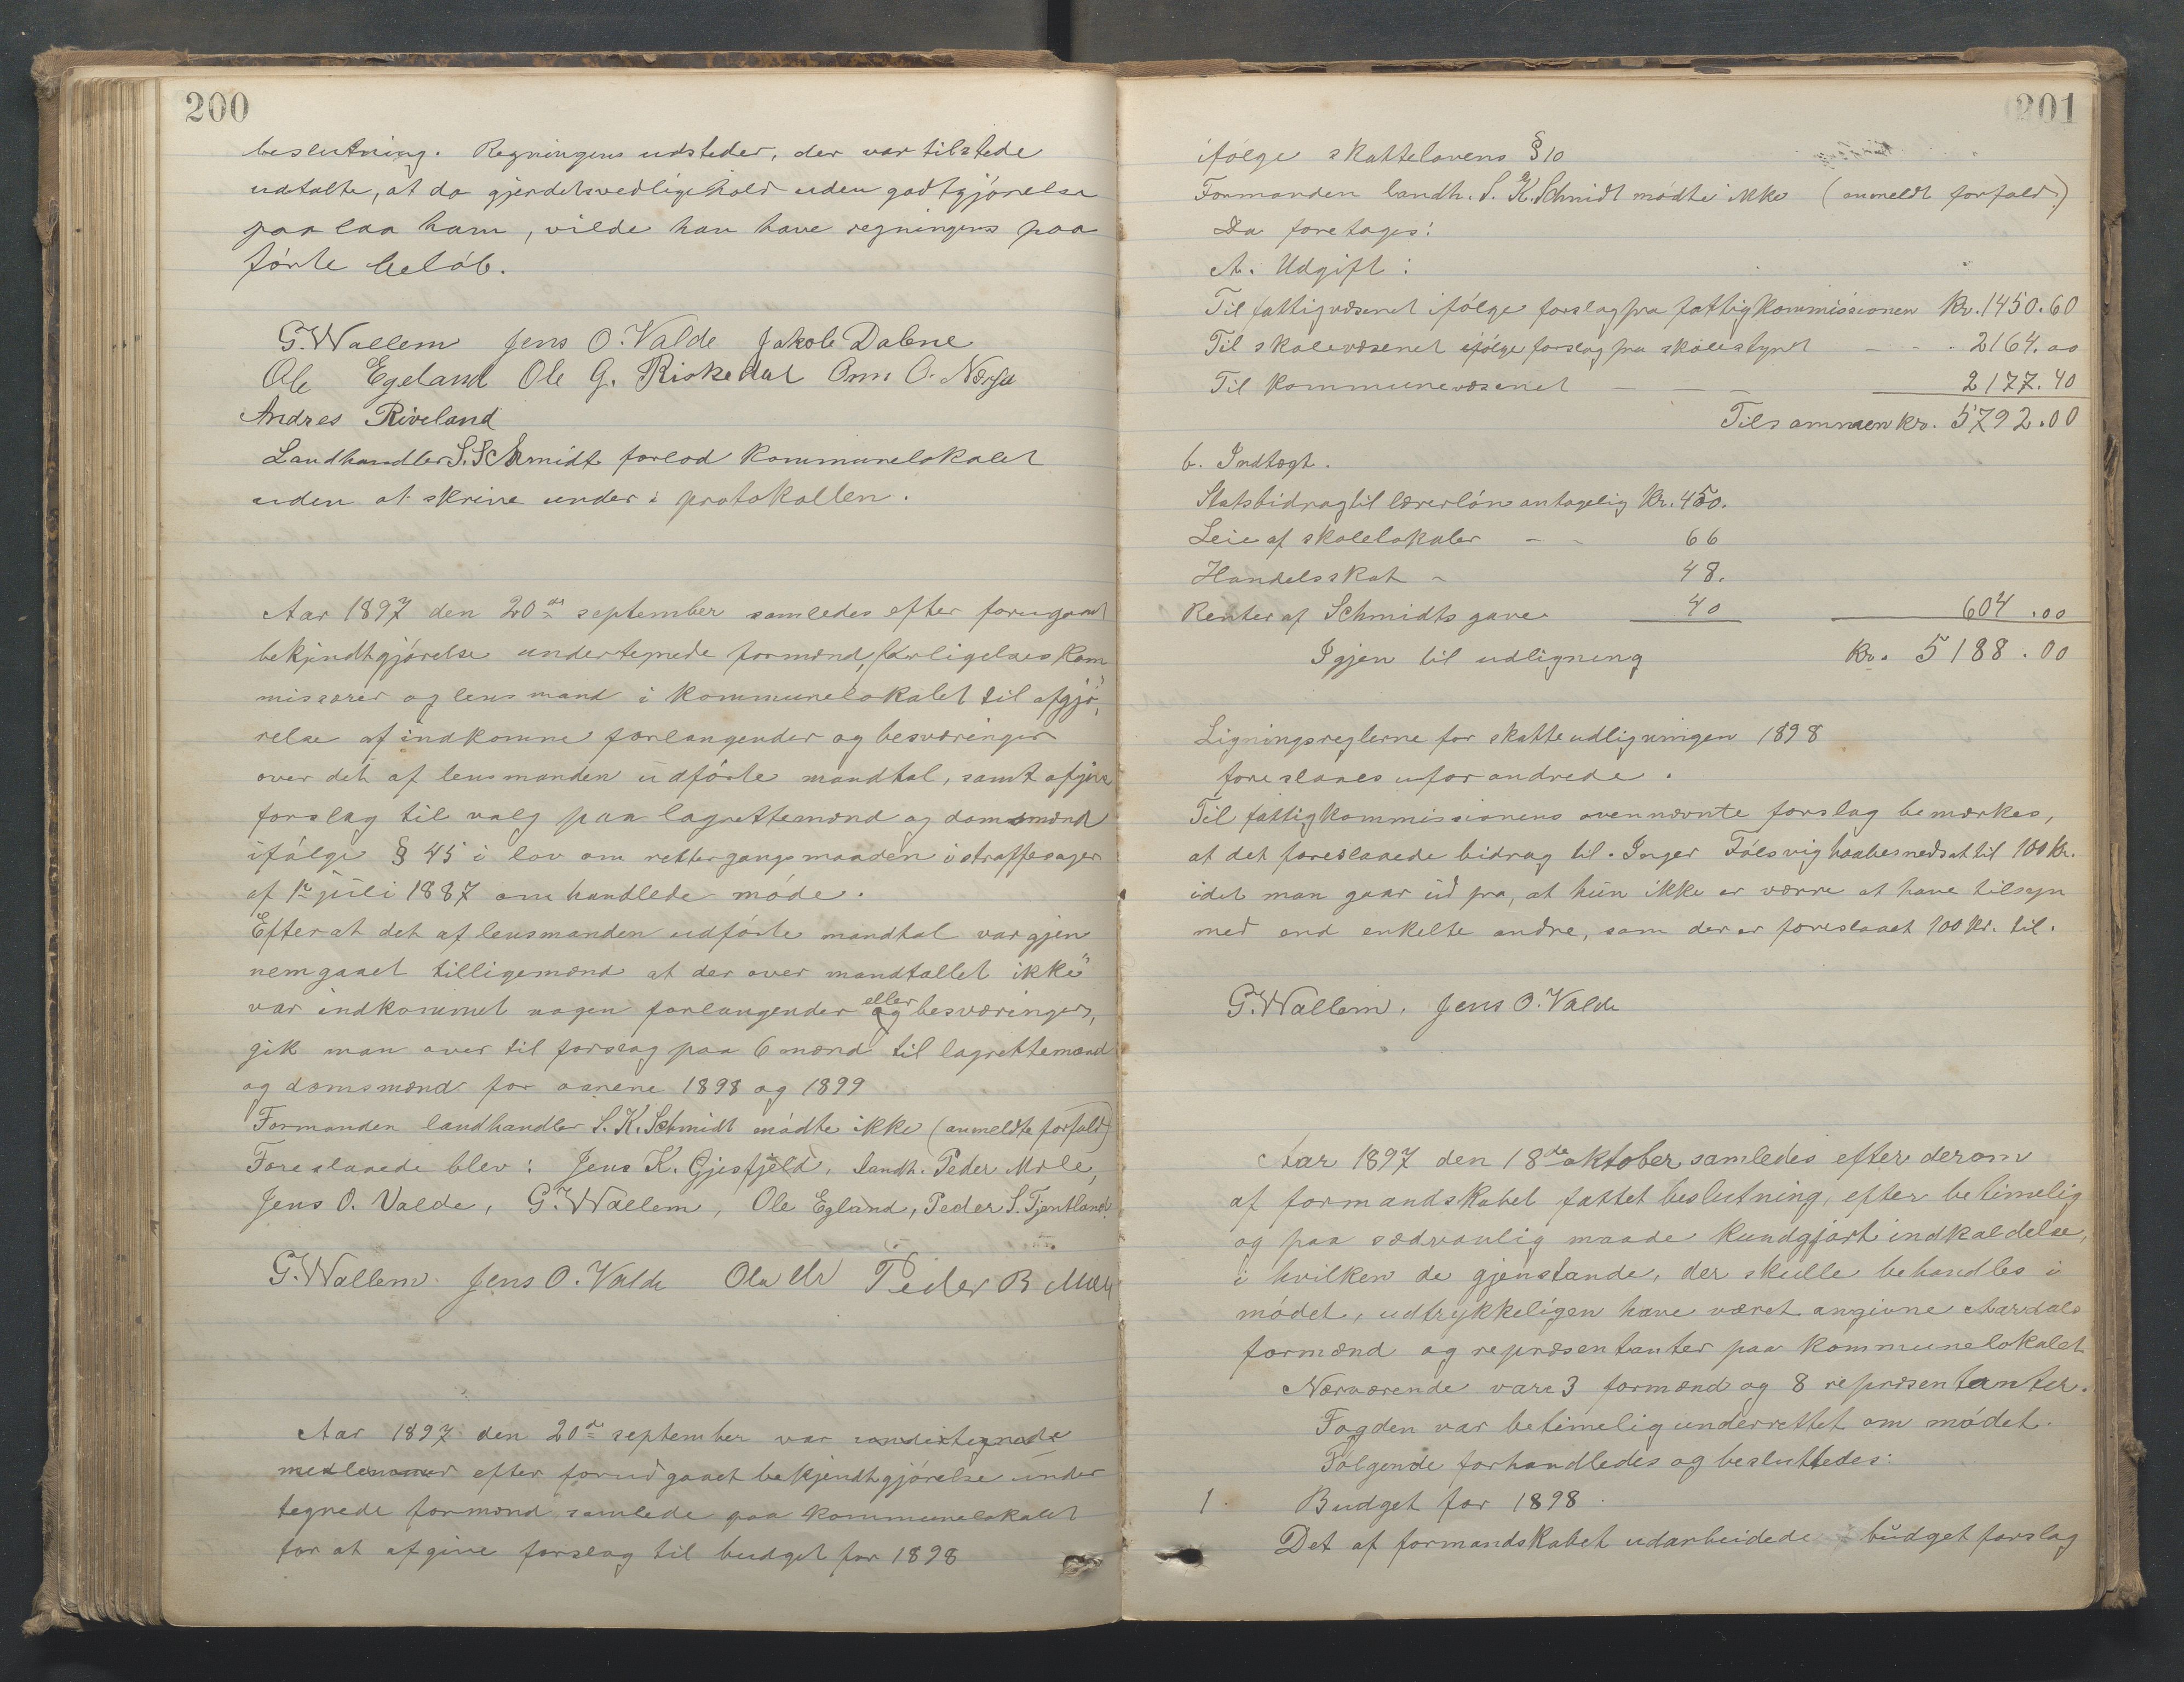 200
beslutning. Regningens udsteder, der var tilstede
udtalte, at da gjerdetsvedligehold uden godtgjørelse
paalaa ham, vilde han have regningens paa
førte beløb.
G. Wallem Jens O. Valde Jakob Dabne
Ole Egeland Ole G. Riskedal O. Nærje
Andres Riveland
Landhandler S. Schmidt forlod kommunelokalet
uden at skrive under i protokollen.
Aar 1897 den 20de september samledes efter forugaaet
bekjendtgjørelse undertegnede formænd, forligelseskom
missærer og lensmand i kommunelokalet til afgjø"
relse af indkomne forlangender og besværinger
over det af lensmanden udførte mandtal, samt afgive
forslag til valg paa lagrettemænd og domsmænd
ifølge § 45 i lov om rettergangsmaaden i straffesager
af 1ste juli 1887 omhandlede møde.
Efterat det af lensmanden udførte mandtal var gjen
nemgaaet tilligemænd at der over mandtallet ikke"
var indkommet nogen forlangender og eller besværinger,
gik man over til forslag paa 6 mænd til lagrettemænd
og domsmænd for aarene 1898 og 1899
Formanden landhandler S. K. Schmidt mødte ikke (anmeldte forfald)
Foreslaaede blev: Jens K. Gjesfjeld, landh. Peder Mæle,
Jens O. Valde, G. Wallem, Ole Egland, Peder S. Tjentland.
G. Wallem. Jens O. Valde Ola Peder B Mæle
Aar 1897 den 20de september var undertegnede
medlemmer efter forudgaaet bekjendtgjørelse under
tegnede formænd samlede paa kommunelokalet
for at afgive forslag til budget for 1898
201
ifølge skattelovens § 10
Formanden landh. S. K. Schmidt mødte ikke (anmeldt forfald.)
Da foretages:
A. Udgift:
Til fattigvæsenet ifølge forslag fra fattigkommissionen Kr. 1450.60
Til skolevæsenet ifølge forslag fra skolestyret - - - 2164.00
Til kommunevæsenet — — 2177.40
Tilsammen kr. 5792.00
b. Indtægt.
Statsbidrag til lærerløn antagelig Kr. 450.
Leie af skolelokaler - - 66
Handelsskat - 48.
Renter af Schmidts gave 40 604.00
Igjen til udligning Kr. 5188.00
Ligningsreglerne for skatteudligningen 1898
foreslaaes uforandrede.
Til fattigkommissionens ovennævnte forslag bemærkes,
at det foreslaaede bidrag til. Inger Følsvig haabes nedsat til 100 kr.
idet man gaar ud fra, at hun ikke er værre at have tilsyn
med end enkelte andre, som der er foreslaaet 100 kr. til.
G. Wallem. Jens O. Valde
Aar 1897 den 18de oktober samledes efter derom
af formandskabet fattet beslutning, efter betimelig
og paa sædvanlig maade kundgjort indkaldelse,
i hvilken de gjenstande, der skulle behandles i
mødet, udtrykkeligen have været angivne Aardals
formænd og repræsentanter paa kommunelokalet
Nærværende vare 3 formænd og 8 repræsentanter.
Fogden var betimelig underrettet om mødet.
Følgende forhandledes og besluttedes:
1. Budget for 1898.
Det af formandskabet udarbeidede budgetforslag